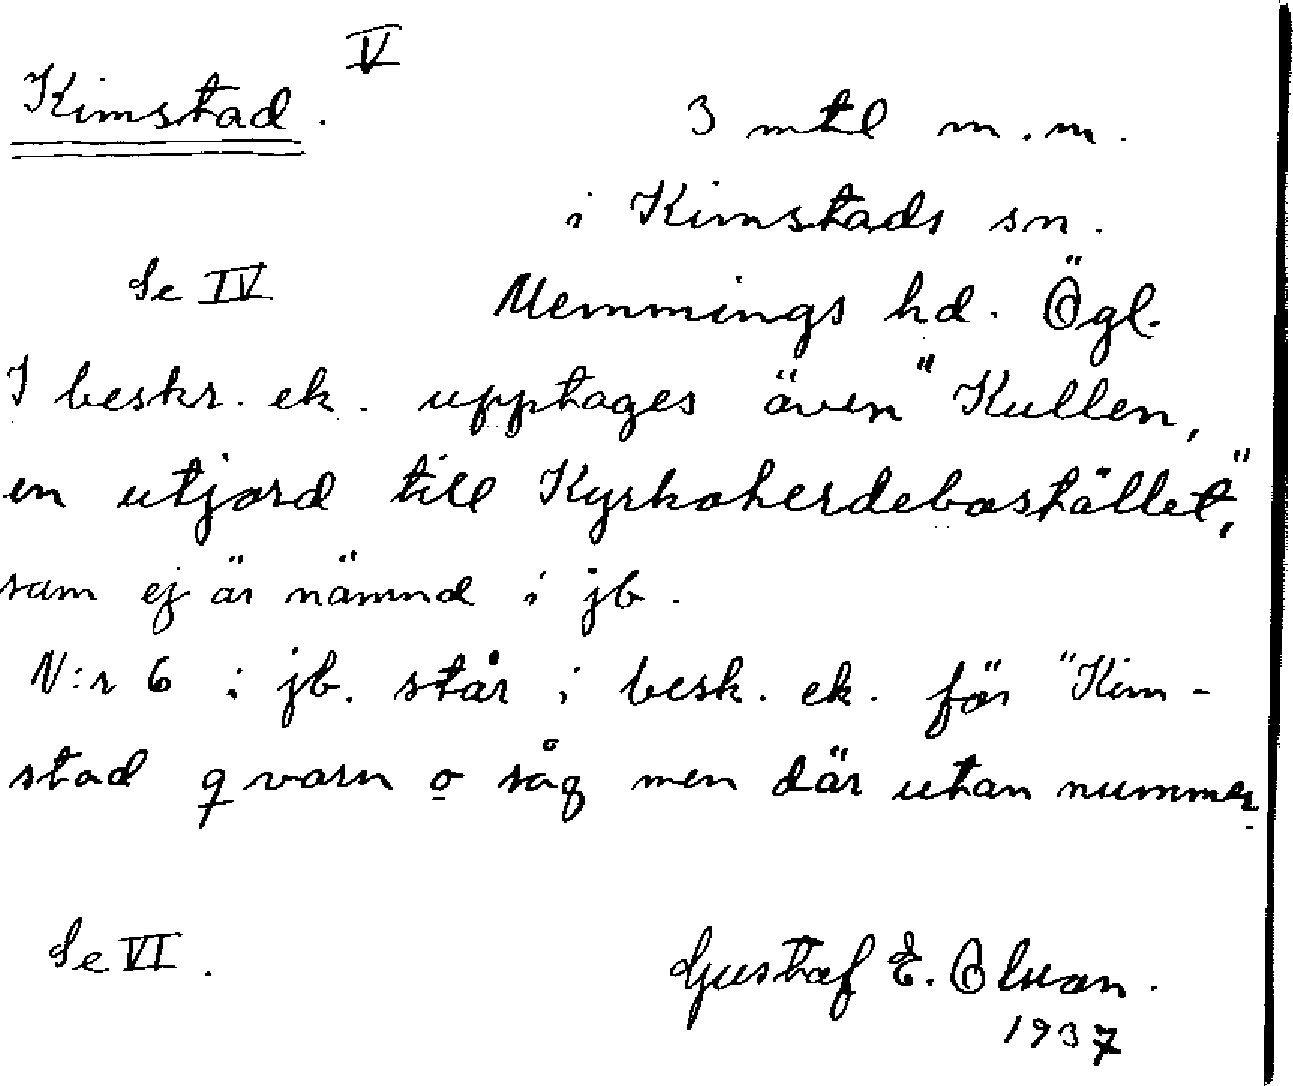 V
Kimstad.
3 mtl m.m.
i Kimstads sn.
Se IV
Memmings hd. Ögl.
I beskr. ek. upptages även "Kullen,
en utjord till Kyrkoherdebostället,"
som ej är nämnd i jb.
N:r 6 i jb. står i besk. ek. för "Kim-
stad qvarn o såg men där utan nummer
Se VI.
Gustaf E.
1937